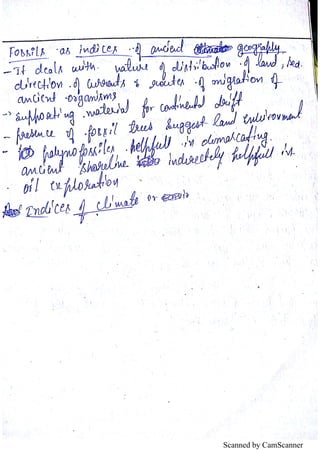 Fossils as indices of ancient geography
- It deals with nature of distribution of land, sea,
direction of currents & routes of migration of
ancient organisms
-> supporting material for continental drift
- presence of fossil trees suggest land environment
- palynofossiles helpfull in demarcating
ancient shoreline indirectely helpfull in
oil exploration
Indices of climate or
Scanned by CamScanner